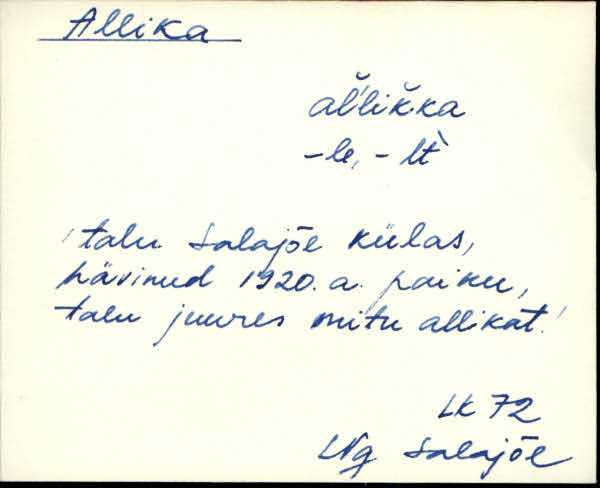 Allika
al̆'lik̆ka
-le, -lt̀
'talu Salajõe külas,
hävinud 1920.a. paiku,
talu juures mitu allikat.'
LK 72
LNg Salajõe